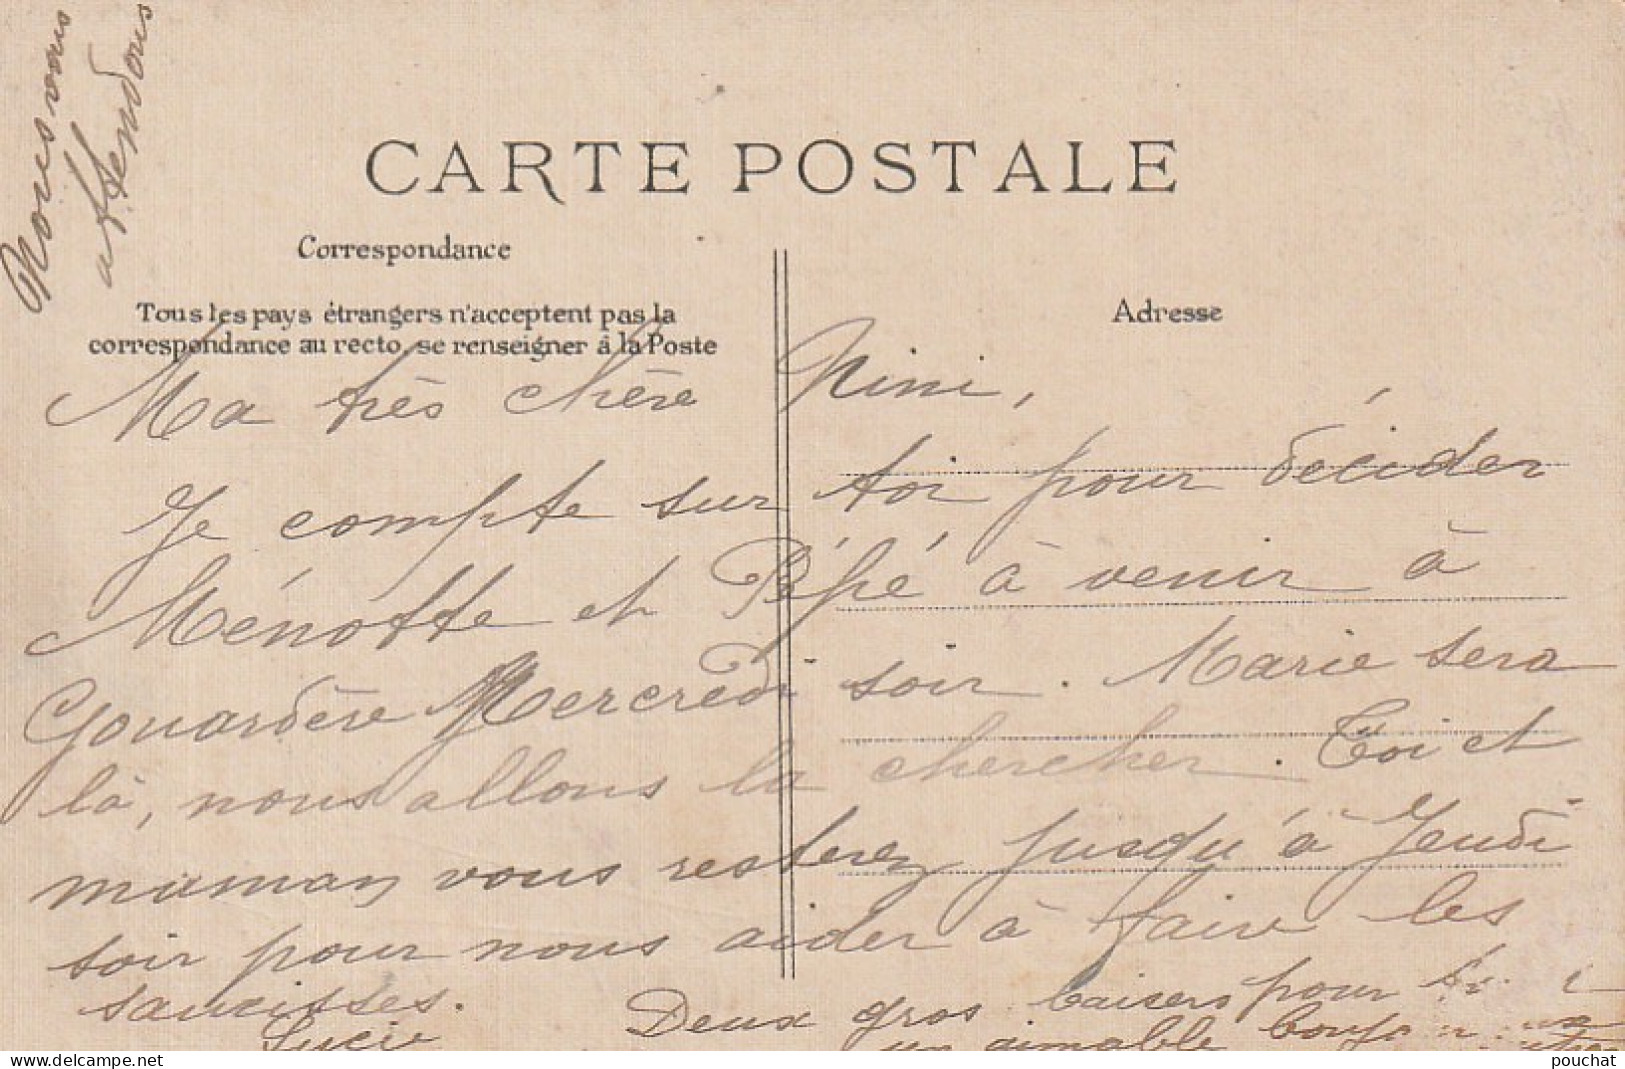 Nous vous
attendons
CARTE POSTALE
Correspondance
Tous les pays étrangers n'acceptent pas la
correspondance au recto, se renseigner à la Poste
Adresse
Ma très chère Nini,
Je compte sur toi pour décider
Ménotte et Pépé à venir à
Gouardère Mercredi soir. Marie sera
là, nous allons la chercher. Toi et
maman, vous resterez jusqu'à Jeudi
soir pour nous aider à faire les
saucisses.
Lucie
Deux gros baisers pour
un aimable
www.delcampe.net
pouchat